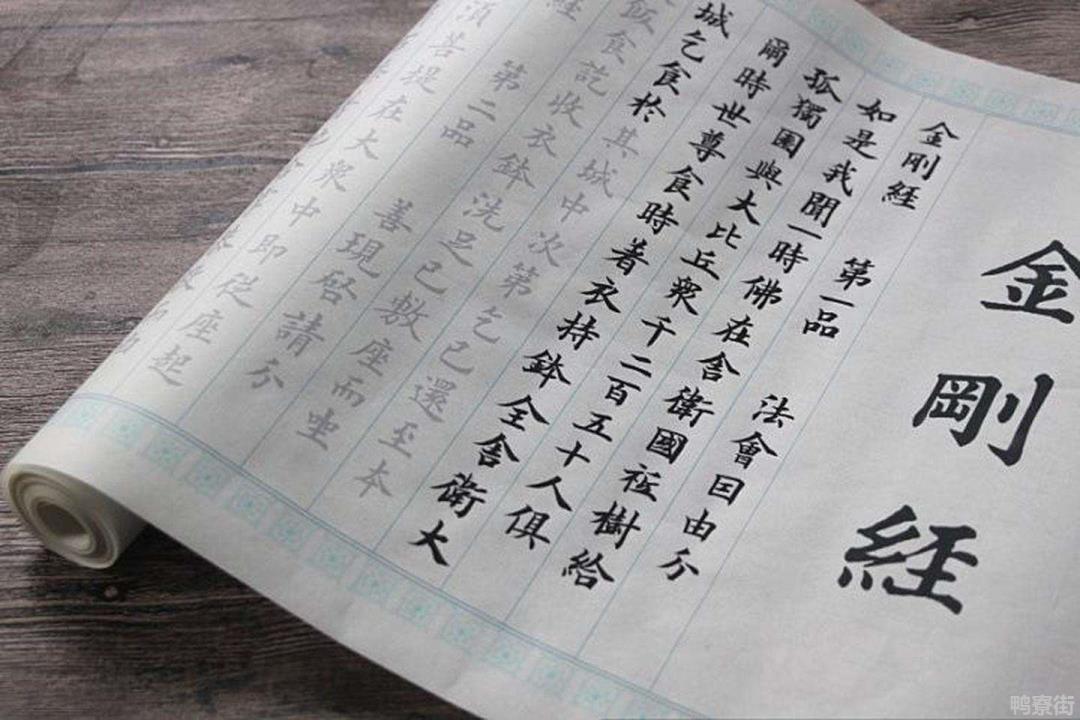 金剛經
金剛經 第一品 法會因由分
如是我聞一時佛在舍衛國祗樹給
孤獨園與大比丘眾千二百五十人俱
爾時世尊食時著衣持鉢全舍衛大
城乞食於其城中次第乞已還至本
飯食訖收衣鉢洗足已敷座而坐
經 第二品 善現啓請分
須菩提在大眾中即從座起
鸭寮街